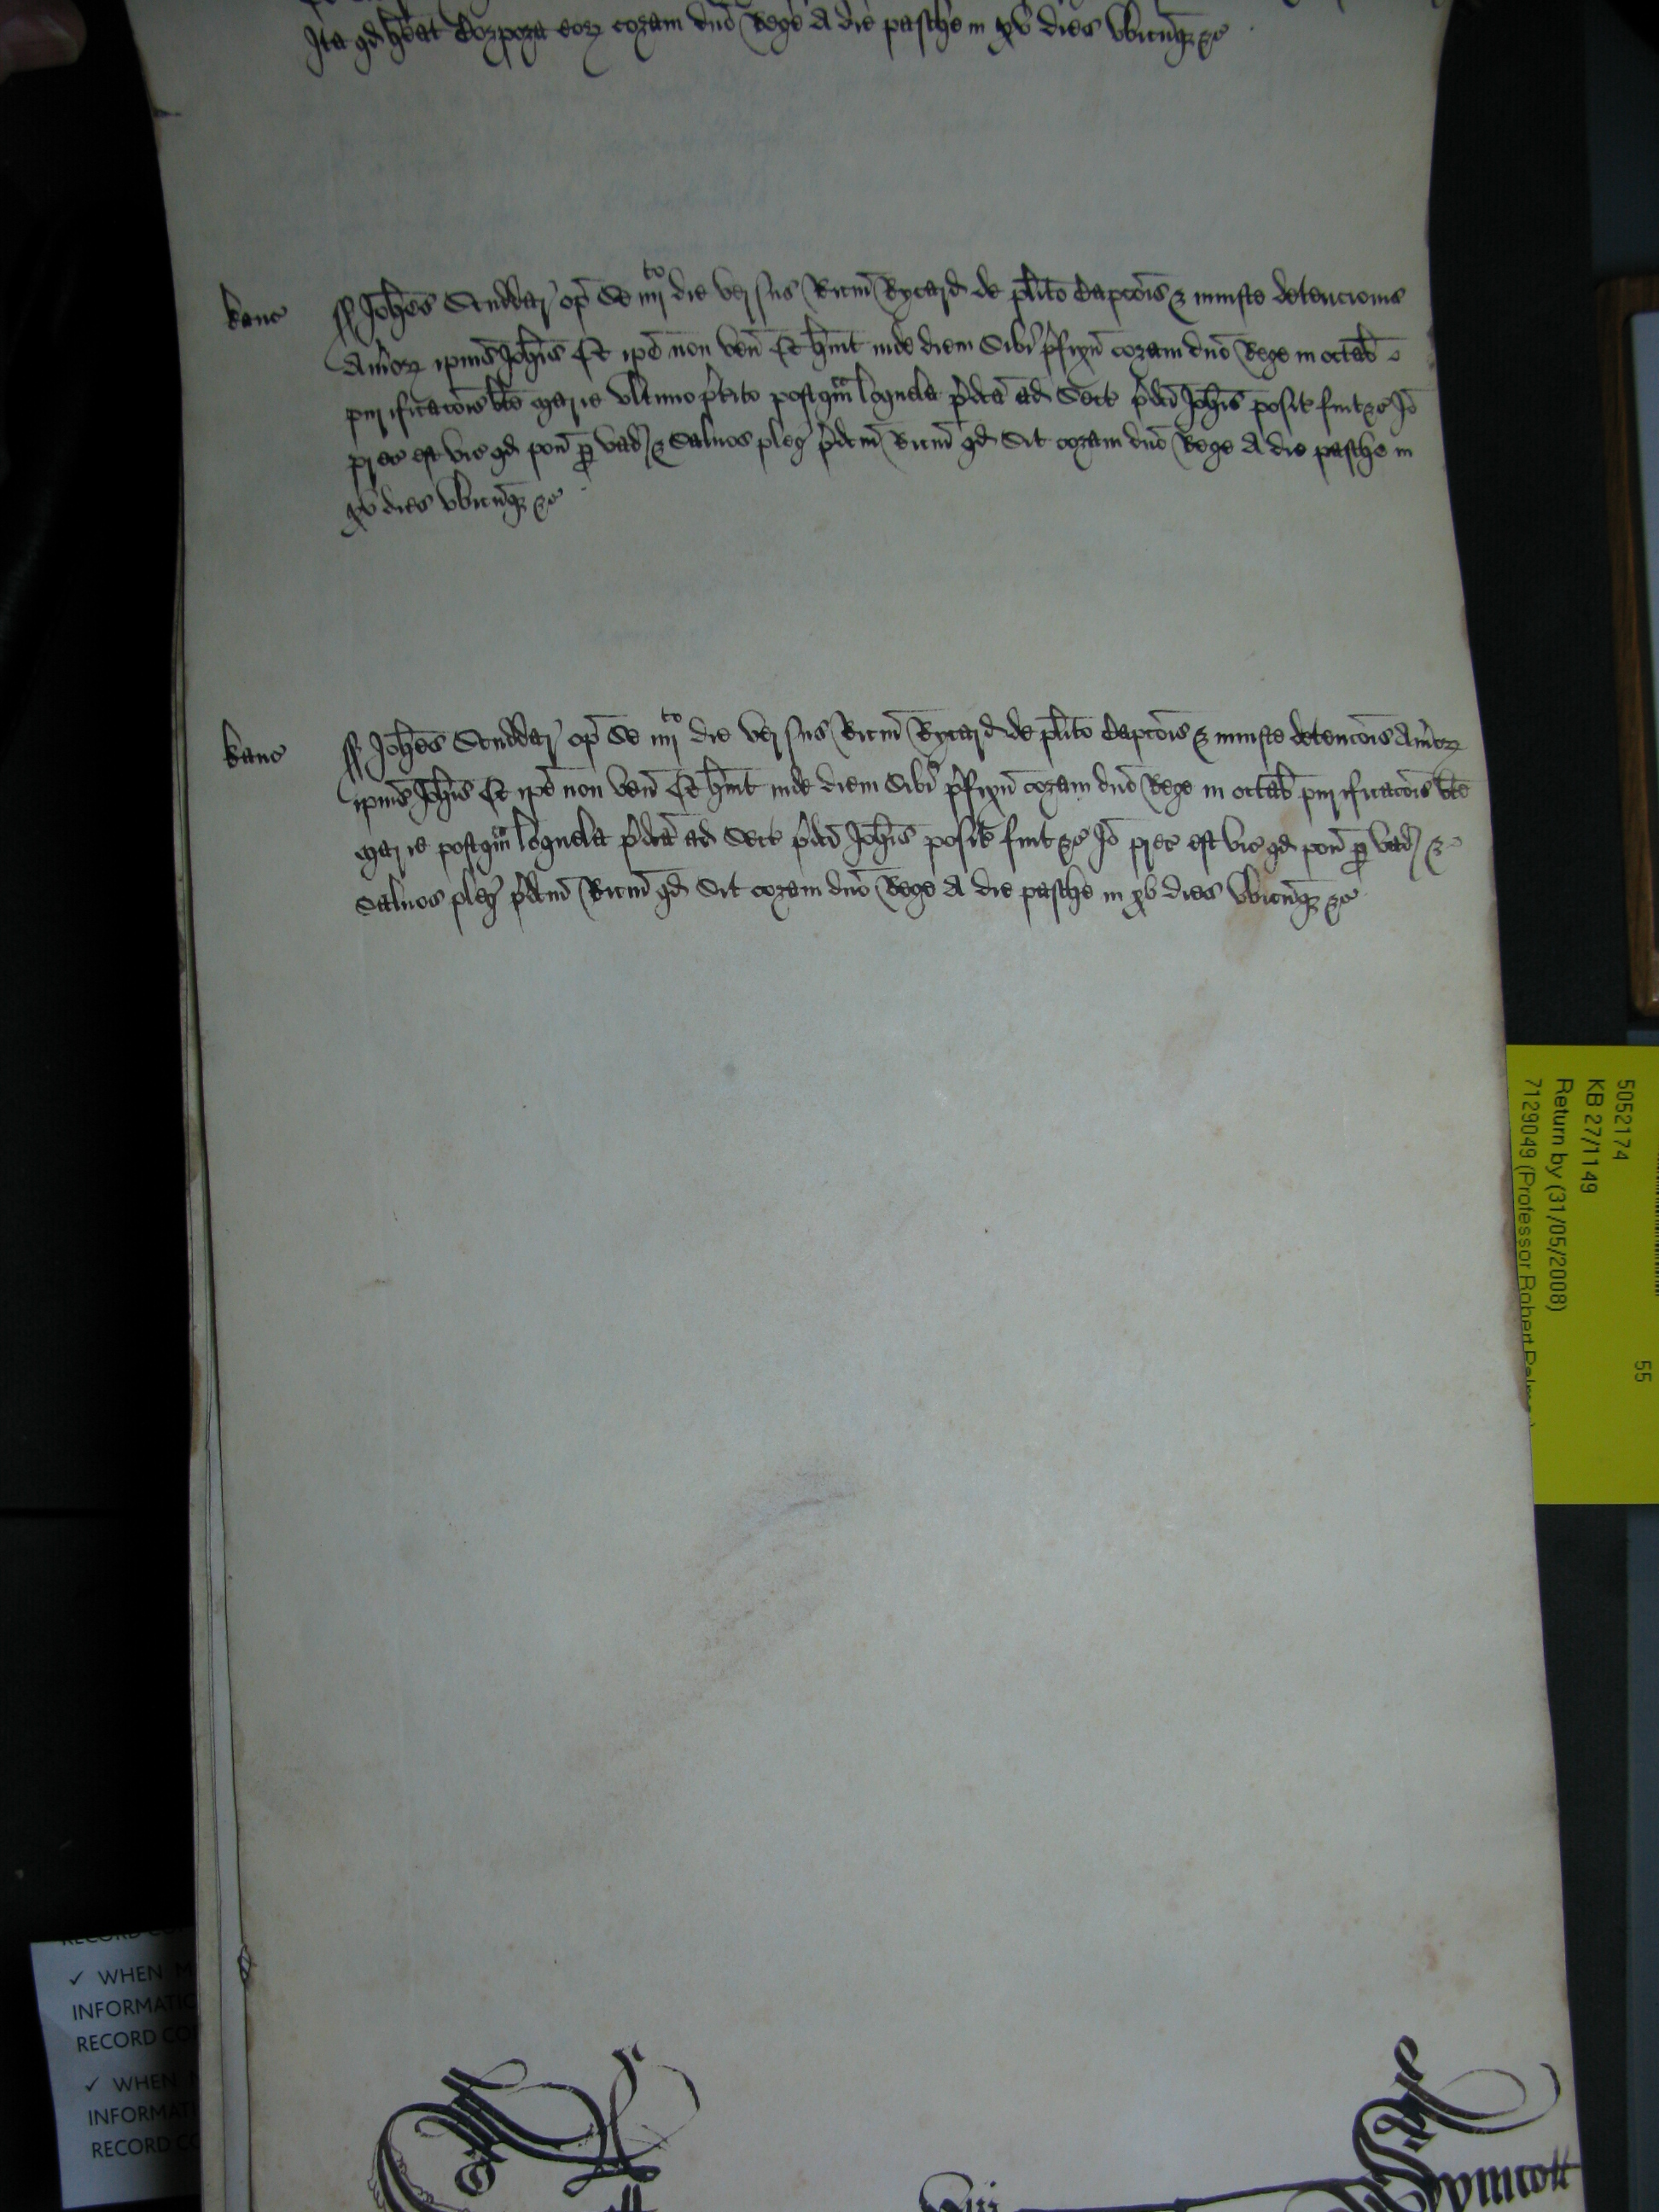 Ita qd h̄eat Corpora eorꝝ coram dn̄o Rege A die pasche in xv dies vbicūqꝫ ꝛc̄
kanc
ss Joh̄es Studdar' op̄ Se iiijto die versus Ricm̄ Rycard de pl̄ito Capcōis ⁊ iniuste detencionis
Au̓ioꝝ ip̄ius Joh̄is Et ip̄e non ven̄ Et h̄uit inde diem Sibi p̓fixū coram dn̄o Rege in octab̄
purificacōis bt̄e marie vltimo p̓terito postqᵃm loquela p̓dc̄a ad Sect̄ p̓dc̄i Joh̄is posit̄ fuit ꝛc̄ Jō
prec̄ est vic̄ qd pon̄ ꝑ vad' ⁊ Saluos pleg̓ p̓dcm̄ Ricm̄ qd Sit coram dn̄o Rege A die pasche in
xv dies vbicūqꝫ ꝛc̄
kanc
ss Joh̄es Studdar' op̄ Se iiijto die versus Ricm̄ Rycard de pl̄ito Capcōis ⁊ iniuste detencōis Au̓ioꝝ
ip̄ius Joh̄is Et ip̄e non ven̄ Et h̄uit inde diem Sibi p̓fixū coram dn̄o Rege in octab̄ purificacōis bt̄e
marie postqᵃm loquela p̓dc̄a ad Sect̄ p̓dc̄i Joh̄is posit̄ fuit ꝛc̄ Jō prec̄ est vic̄ qd pon̄ ꝑ vad' ⁊
Saluos pleg̓ p̓dcm̄ Ricm̄ qd Sit coram dn̄o Rege A die pasche in xv dies vbicūqꝫ ꝛc̄
5052174
55
KB 27/1149
Return by (31/05/2008)
7129049 (Professor Robert Palmer)
✓ WHEN
INFORMATIO
RECORD CO
✓ WHEN
INFORMATI
RECORD CO